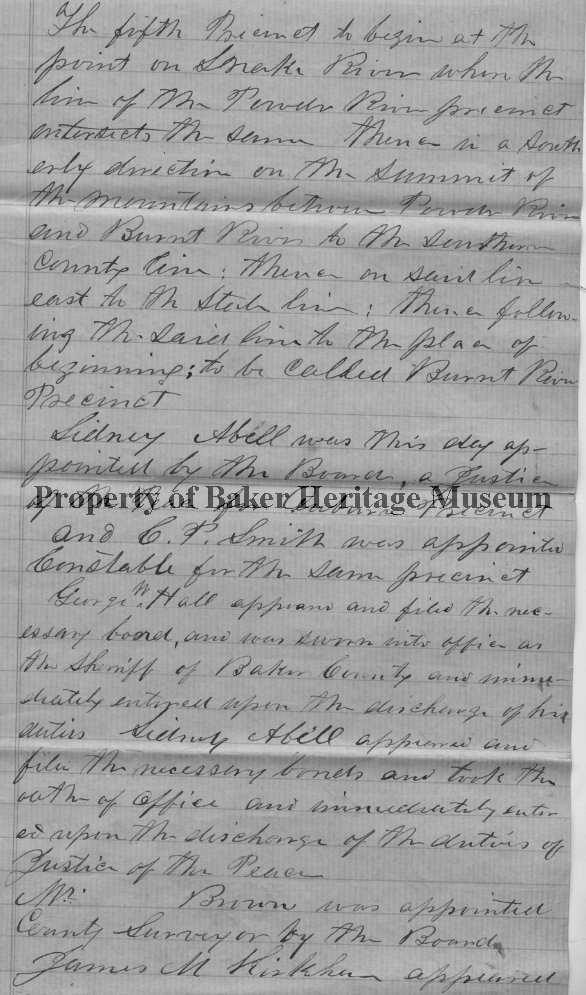 The fifth Precinct to begin at the
point on Snake River where the
line of the Powder River precinct
entersects the same thence in a south
erly direction on the summit of
the mountains between Powder River
and Burnt River to the Southern
County line; thence on said line
east to the State line; thence follow-
ing the said line to the place of
beginning; to be called Burnt River
Precinct
Sidney Abell was this day ap-
pointed by the Board, a Justice
of the Peace for Auburn Precinct
Property of Baker Heritage Museum
and C. P. Smith was appointed
Constable for the same precinct
George W. Hall appeared and filed the nec-
essary bond, and was sworn into office as
the Sheriff of Baker County and imme-
diately entered upon the discharge of his
duties Sidney Abell appeared and
filed the necessary bonds and took the
oath of office and immediately enter
ed upon the discharge of the duties of
Justice of the Peace
Mr. Brown was appointed
County Surveyor by the Board
James M Kirkham appeared